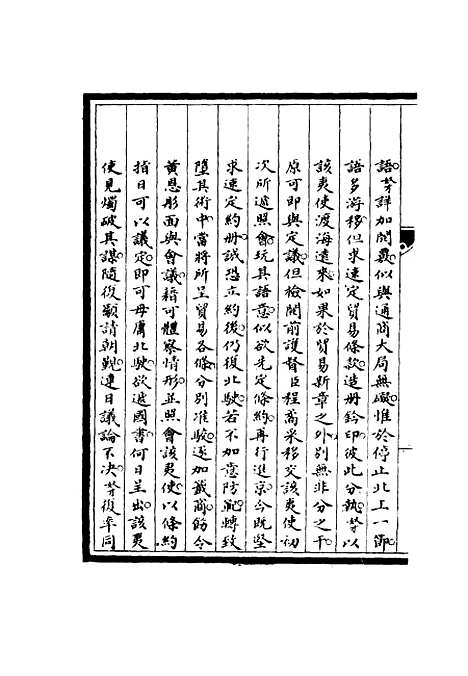 語芽詳加閱覈似與通商大局無礙惟於停止北上一節
語多游移但求速定貿易條款造册鈐印彼此分執芽以
該夷使渡海遠來如果於貿易新章之外別無非分之干
原可即與定議但檢閱前護督臣程矞采移交該夷使初
次所遞照會玩其語意似欲先定條約再行進京今既堅
求速定約册誠恐立約後仍復北駛若不加意防範轉致
墮其術中當將所呈貿易各條分別准駁逐加籤商飭令
黃恩彤面與會議藉可體察情形並照會該夷使以條約
指日可以議定即可毋庸北駛欲遞國書何日呈出該夷
使見燭破其謀隨復顯請朝覲連日議論不決芽復率同